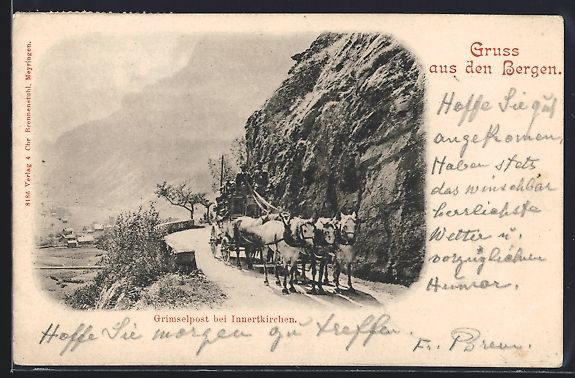 Gruss
aus den Bergen.
8186 Verlag v. Chr. Brennenstuhl, Meyringen.
Hoffe Sie gut
angekommen,
Haben stets
das wünschbar
herrlichste
Wetter u.
vorzüglichen
Humor.
Grimselpost bei Innertkirchen.
Hoffe Sie morgen zu treffen.
Fr.